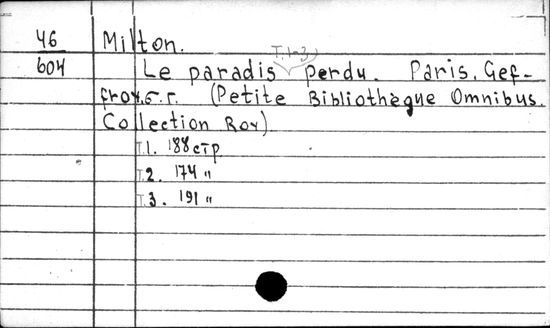 46 Milton.
T.1-3
604 Le paradis perdu. Paris, Gef-
froy, б.г. (Petite Bibliothèque Omnibus.
Collection Roy)
T.1. 188 стр
T.2. 174 "
T.3. 191 "